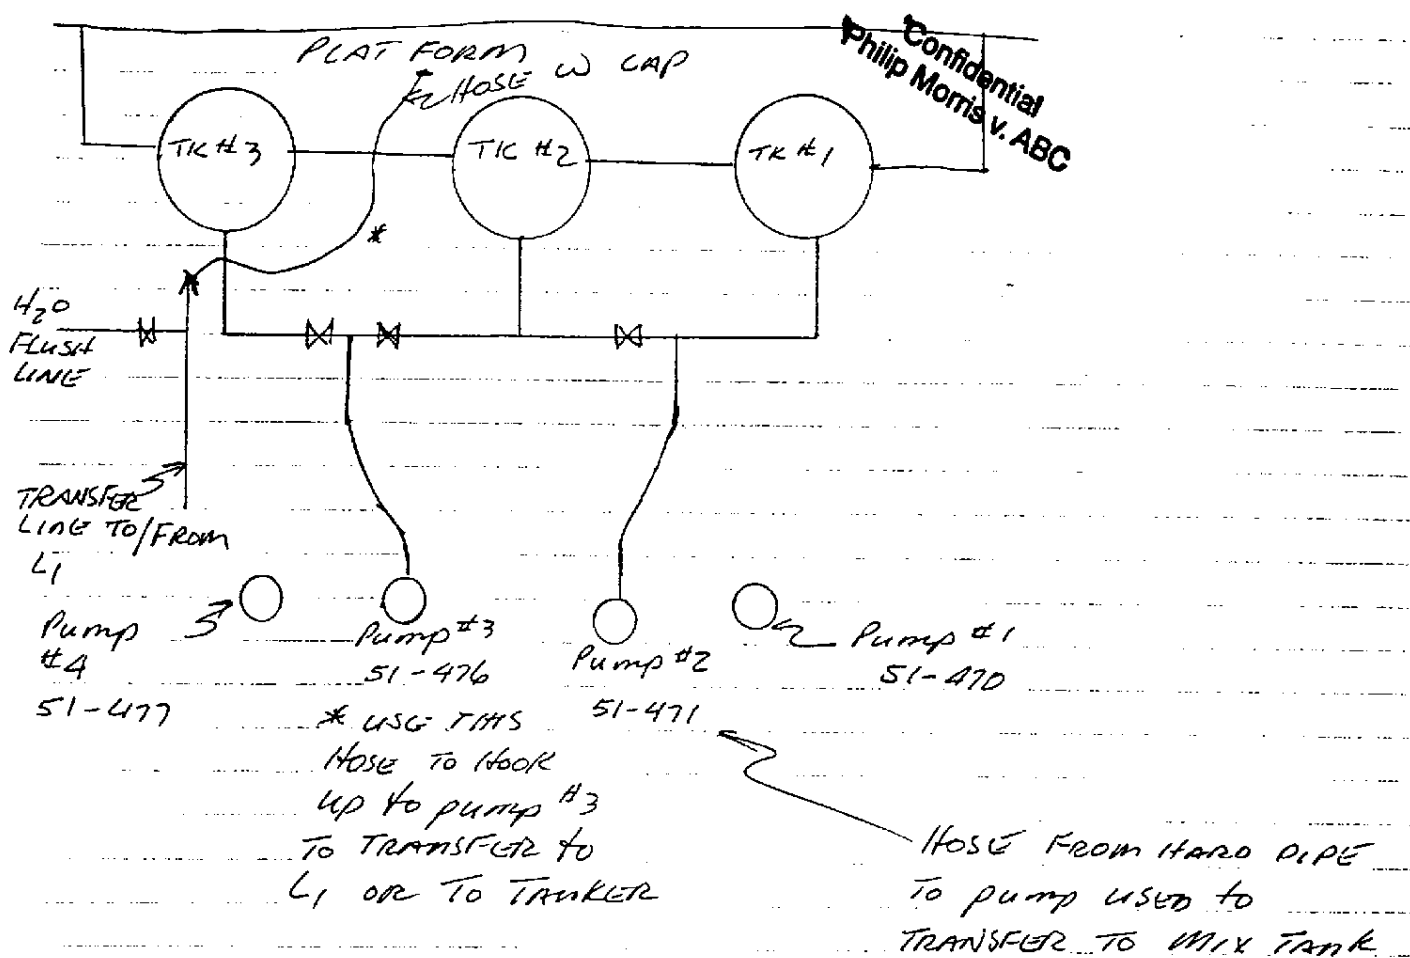 Confidential
Philip Morris v. ABC
PLATFORM
HOSE W CAP
TK #3
TK #2
TK #1
*
H2O
FLUSH
LINE
TRANSFER
LINE TO/FROM
L1
Pump
#4
51-477
Pump #3
51-476
Pump #2
51-471
Pump #1
51-470
* USE THIS
HOSE TO HOOK
UP to pump #3
TO TRANSFER to
L1 OR TO TANKER
HOSE FROM HARD PIPE
TO pump USED to
TRANSFER TO MIX TANK